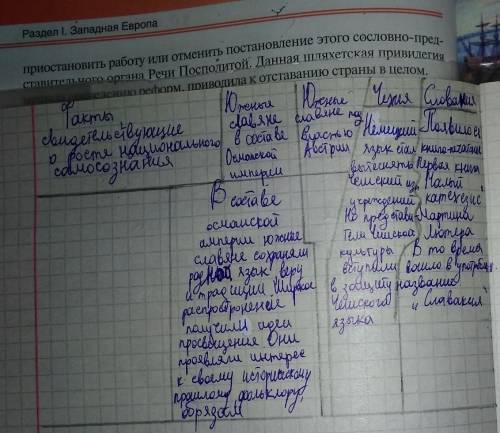 Раздел I. Западная Европа
приостановить работу или отменить постановление этого сословно-пред-
ставительного органа Речи Посполитой. Данная шляхетская привилегия
реформ, приводила к отставанию страны в целом.
Факты
свидетельствующие
о росте национального
самосознания
Южные
славяне
в составе
Османской
империи
Южные
славяне под
властью
Австрии
Чехия
Немецкий
язык стал
вытеснять
чешский из
учреждений
Но представи
тели чешской
культуры
вступили
в защиту
Чешского
языка
Словакия
Появилось
книгопечатание
Первая книга
Малый
катехезис
Мартина
Лютера
В то время
вошло в употребл
название
"Словакия
В составе
османской
империи южные
славяне сохраняли
родной язык веру
и традиции Широкое
распространение
получили идеи
просвещения Они
проявляли интерес
к своему историческому
прошлому фольклору,
обрядам